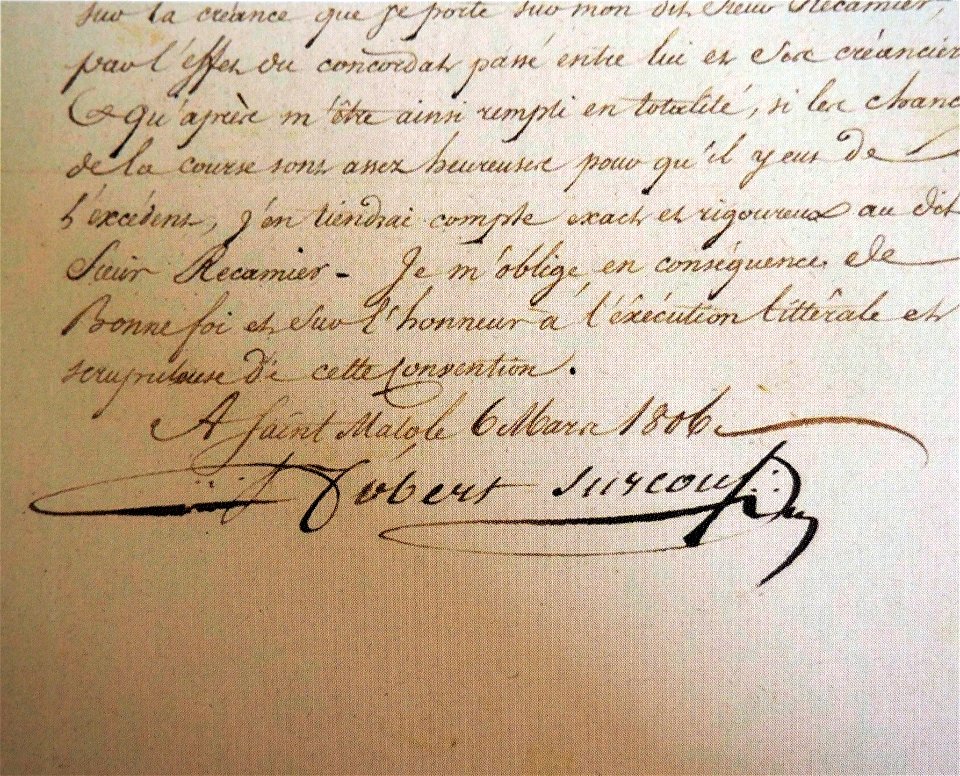 sur la créance que je porte sur mon dit Sieur Recamier,
par l'éffet du concordat passé entre lui et Ses créancier
& qu'après m'être ainsi rempli en totalité, si les chanc
de la course sont assez heureuses pour qu'il y eut de
l'éxcédent, j'en tiendrai compte éxact et rigoureux au dit
Sieur Recamier - Je m'oblige, en conséquence de
Bonne foi et Sur l'honneur à l'éxécution littérale et
scrupuleuse de cette Convention.
A Saint Malo, le 6 Mars 1806
Robert Surcouf